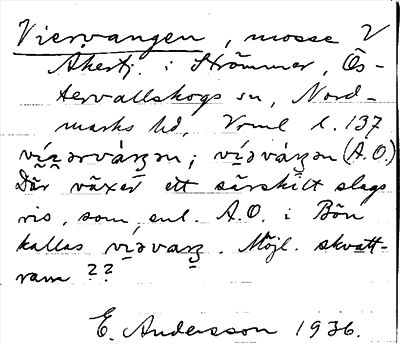 Viervangen, mosse V
Åkertj. i Strömmer, Ös-
tervallskogs sn, Nord-
marks hd, Vrml l. 137
Där växer ett särskilt slags
ris, som, enl. A.O. i Bön
kallas
. Möjl. skvatt-
ram ??
E. Andersson 1936.